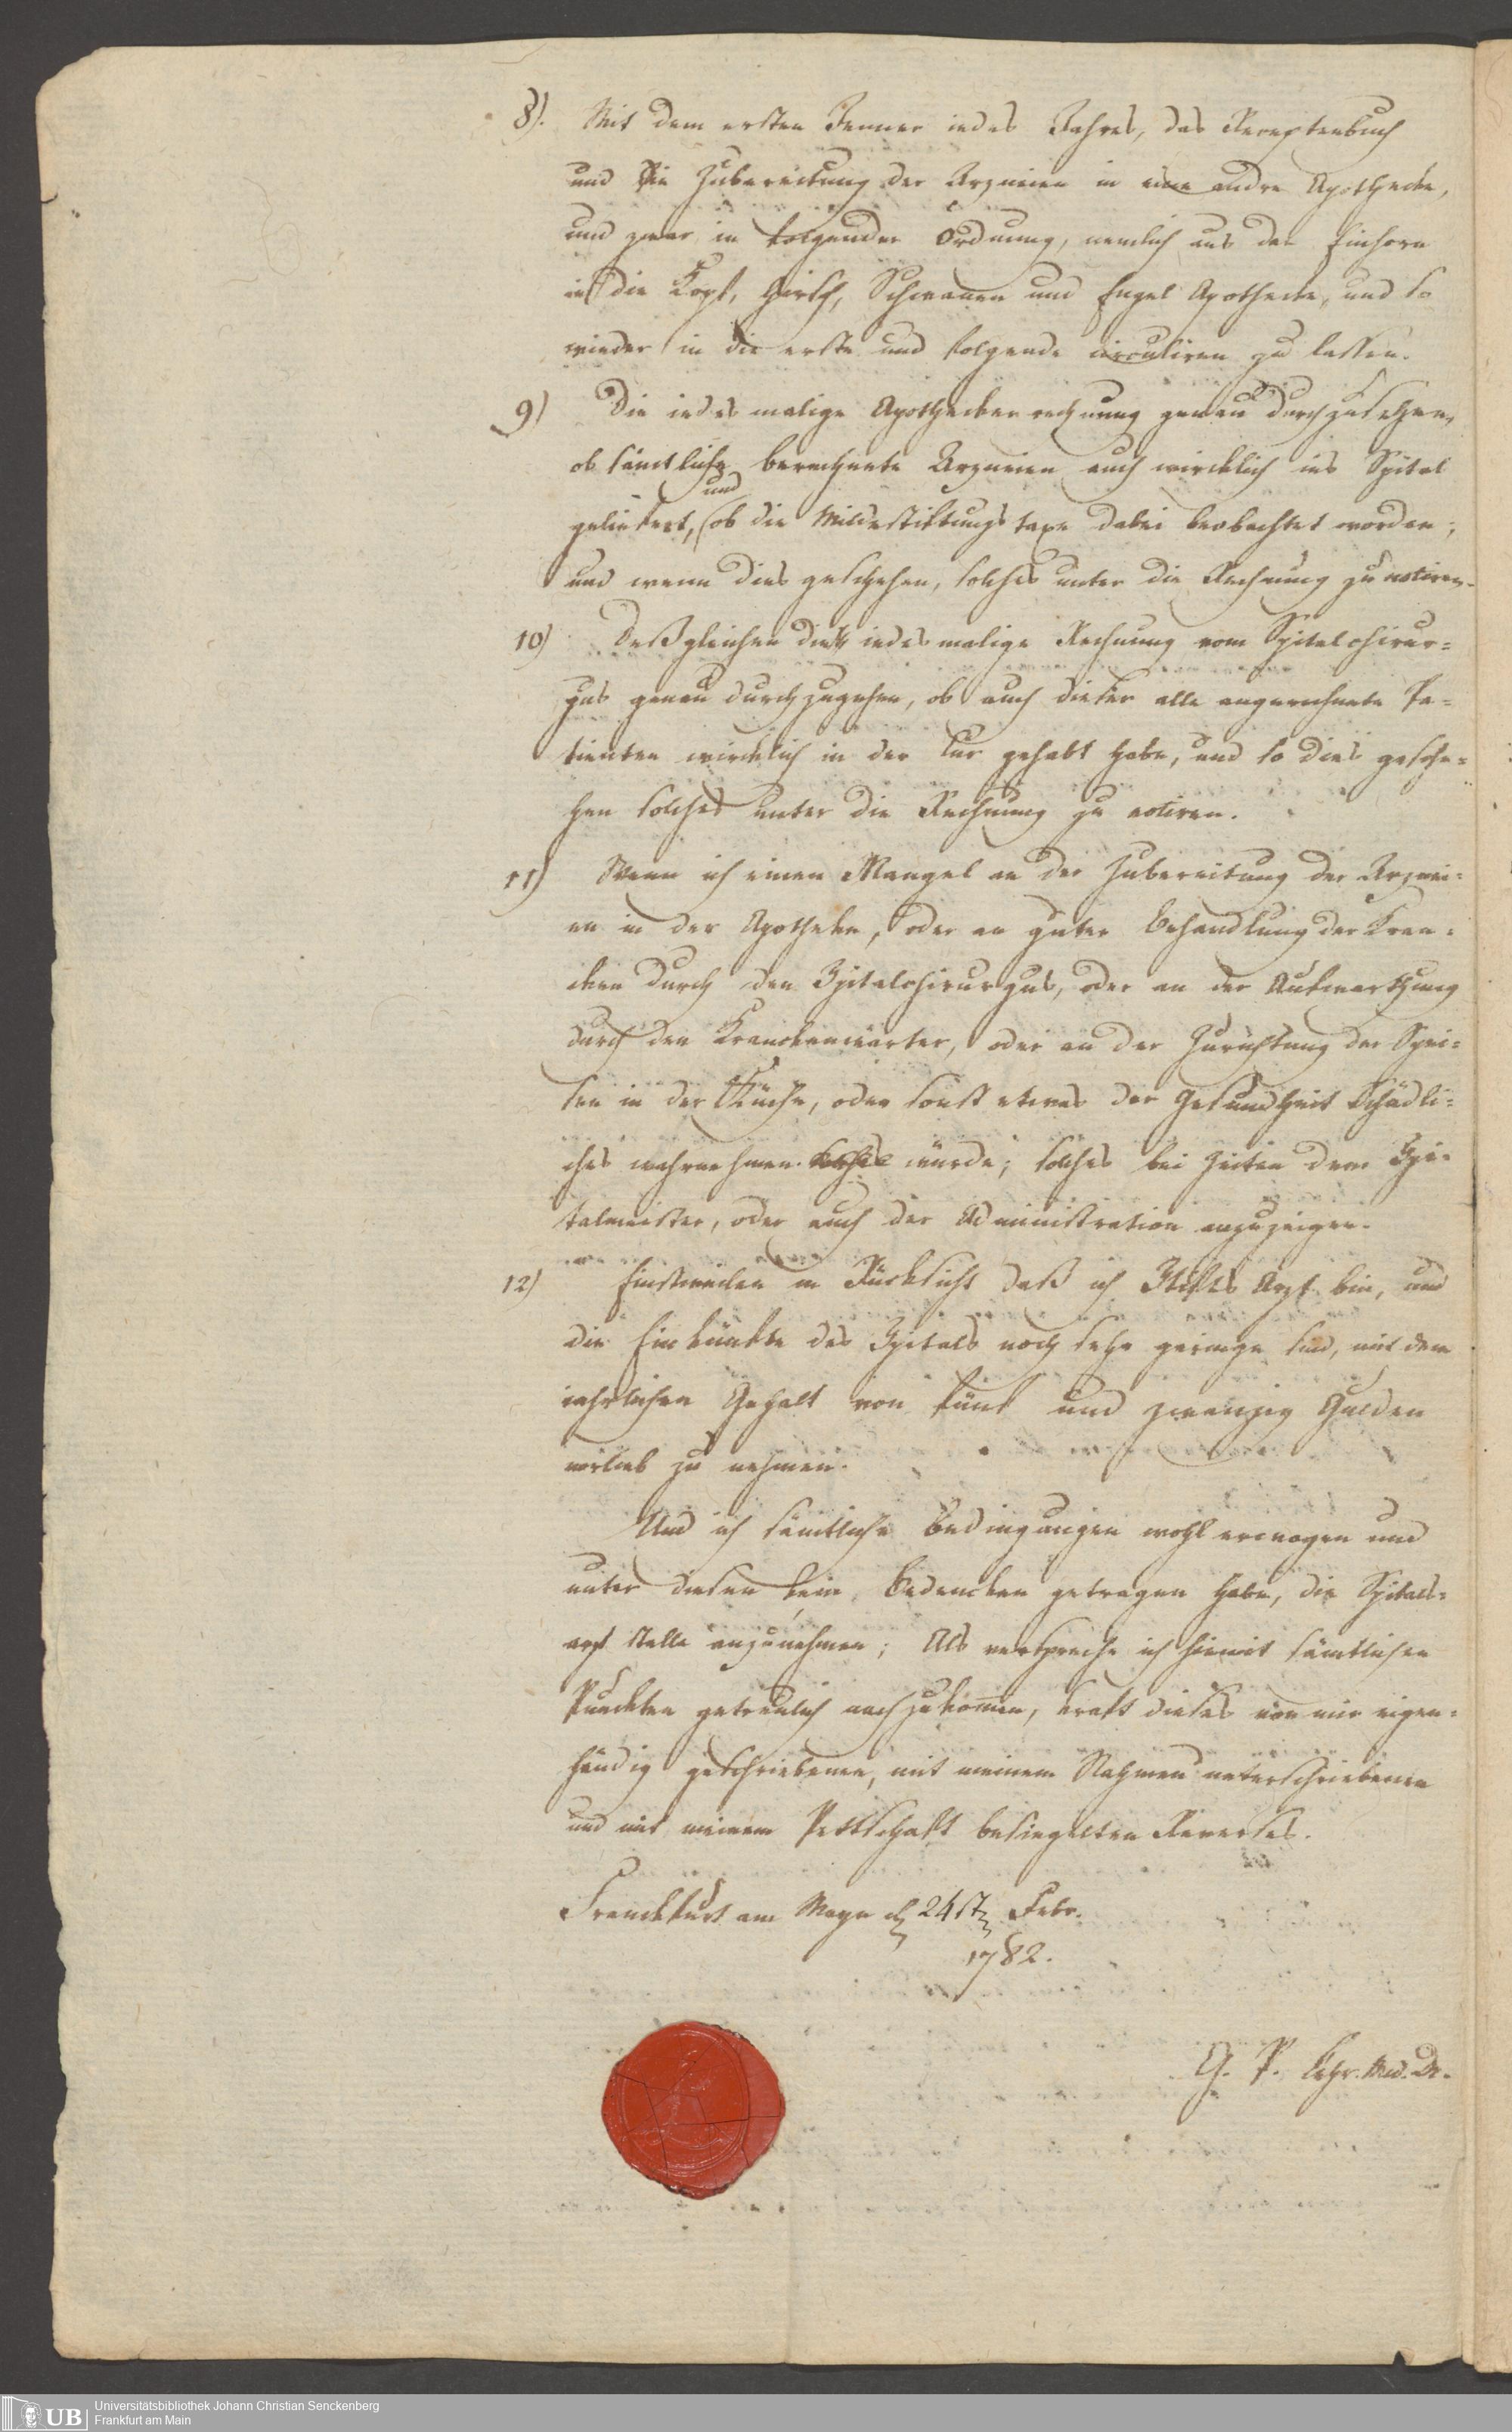 8). Mit dem ersten Jenner iedes Jahres, das Receptenbuch
und die Zubereitung der Arzneien in eine andre Apothecke,
und zwar in folgender Ordnung, nemlich aus der Einhorn
in die Kopf, Hirsch, Schwanen und Engel Apothecke, und so
wieder in die erste und folgende circuliren zu lassen.
9) Die iedesmalige Apothecker rechnung genau durchzusehen,
ob sämtliche berechnete Arzneien auch wircklich ins Spital
und
geliefert, ob die Mildestiftungs taxe dabei beobachtet worden;
und wenn dies geschehen, solches unter die Rechnung zu notiren.
10) Deßgleichen die iedesmalige Rechnung vom Spitalchirur=
gus genau durchzugehen, ob auch dieser alle angerechnete Pa=
tienten wircklich in der Cur gehabt habe, und so dies gesche=
hen solches unter die Rechnung zu notiren.
11) Wenn ich einen Mangel an der Zubereitung der Arznei=
en in der Apotheke, oder an guter Behandlung der Kran=
cken durch den Spitalchirurgus, oder an der Aufwarthung
durch den Kranckenwärter, oder an der Zurichtung der Spei=
sen in der Küche, oder sonst etwas der Gesundheit Schädli=
ches wahrnehmen würde; solches bei Zeiten dem Spi=
talmeister, oder auch der Administration anzuzeigen.
12) Einstweilen in Rücksicht daß ich Stifts Arzt bin, und
die Einkünfte des Spitals noch sehr geringe sind, mit dem
iährlichen Gehalt von fünf und zwanzig Gulden
vorlieb zu nehmen.
Und ich sämtliche Bedingungen wohl erwogen und
unter diesen kein Bedencken getragen habe, die Spitals=
arzt Stelle anzunehmen; Als verspreche ich hiemit sämtlichen
Punckten getreulich nachzukommen, kraft dieses von mir eigen=
händig geschriebenen, mit meinem Nahmen unterschriebenen
und mit meinem Pettschaft besiegelten Reverses.
Franckfurt am Mayn d 24st Febr.
1782.
G. P. Lehr. Med. Dr.
UB
Universitätsbibliothek Johann Christian Senckenberg
Frankfurt am Main